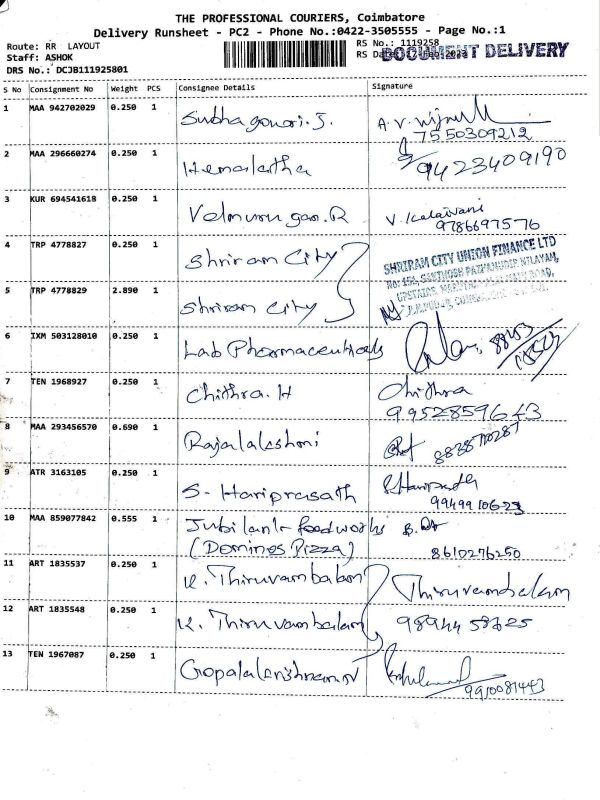 THE PROFESSIONAL COURIERS, Coimbatore
Delivery Runsheet - PC2 - Phone No.:0422-3505555 - Page No.:1
Route: RR LAYOUT
Staff: ASHOK
DRS No.: DCJB111925801
RS No.: 1119258
RS Date
DOCUMENT DELIVERY
S No Consignment No Weight PCS Consignee Details Signature
1 MAA 942702029 0.250 1 Subhagowri.S. A.V.
7550309212
2 MAA 296660274 0.250 1 Hemalatha 9423409190
3 KUR 694541618 0.250 1 Velmurugan.R V. Kalaivani
9786697576
4 TRP 4778827 0.250 1 Shriram City
SHRIRAM CITY UNION FINANCE LTD
5 TRP 4778829 2.890 1 Shriram City
6 IXM 503128010 0.250 1 Lab Pharmaceuticals
7 TEN 1968927 0.250 1 Chithra.H Chithra
9952859643
8 MAA 293456570 0.690 1 Rajalakshmi
9 ATR 3163105 0.250 1 S. Hariprasath S.Hariprasath
10 MAA 859077842 0.555 1 Jubilant foodworks
(Dominos Pizza) 8610276250
11 ART 1835537 0.250 1 K. Thiruvambalam Thiruvambalam
12 ART 1835548 0.250 1 K. Thiruvambalam
13 TEN 1967087 0.250 1 Gopalakrishnan
9910081443